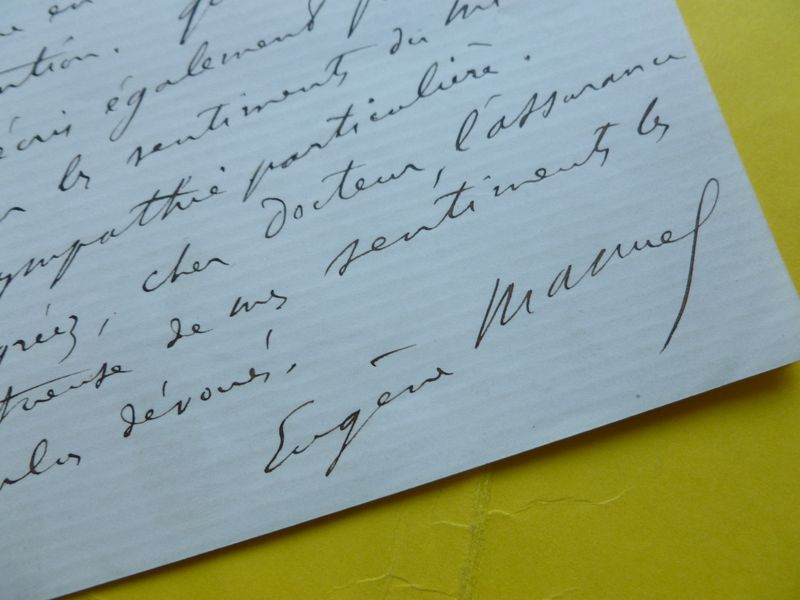 en
ntion.
écris également
les sentiments du
sympathie particulière.
gréez, cher docteur, l'assurance
tueuse de mes sentiments les
plus dévoués.
Eugène Manuel